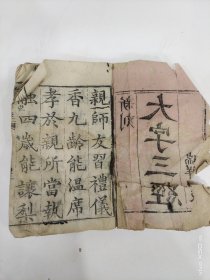 新刻
大字三經
親師友習禮儀
香九齡能溫席
孝於親所當執
融四歲能讓梨